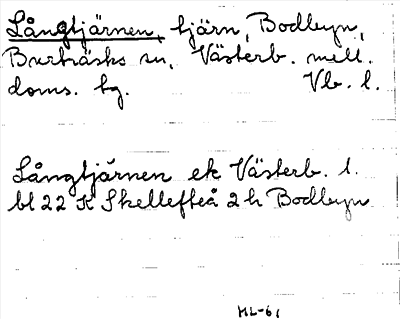 Långtjärnen, tjärn, Bodbyn,
Burträsks sn, Västerb. mell.
doms. tg. Vb. l.
Långtjärnen ek Västerb. l.
bl 22 K Skellefteå 2 h Bodbyn
HL-61